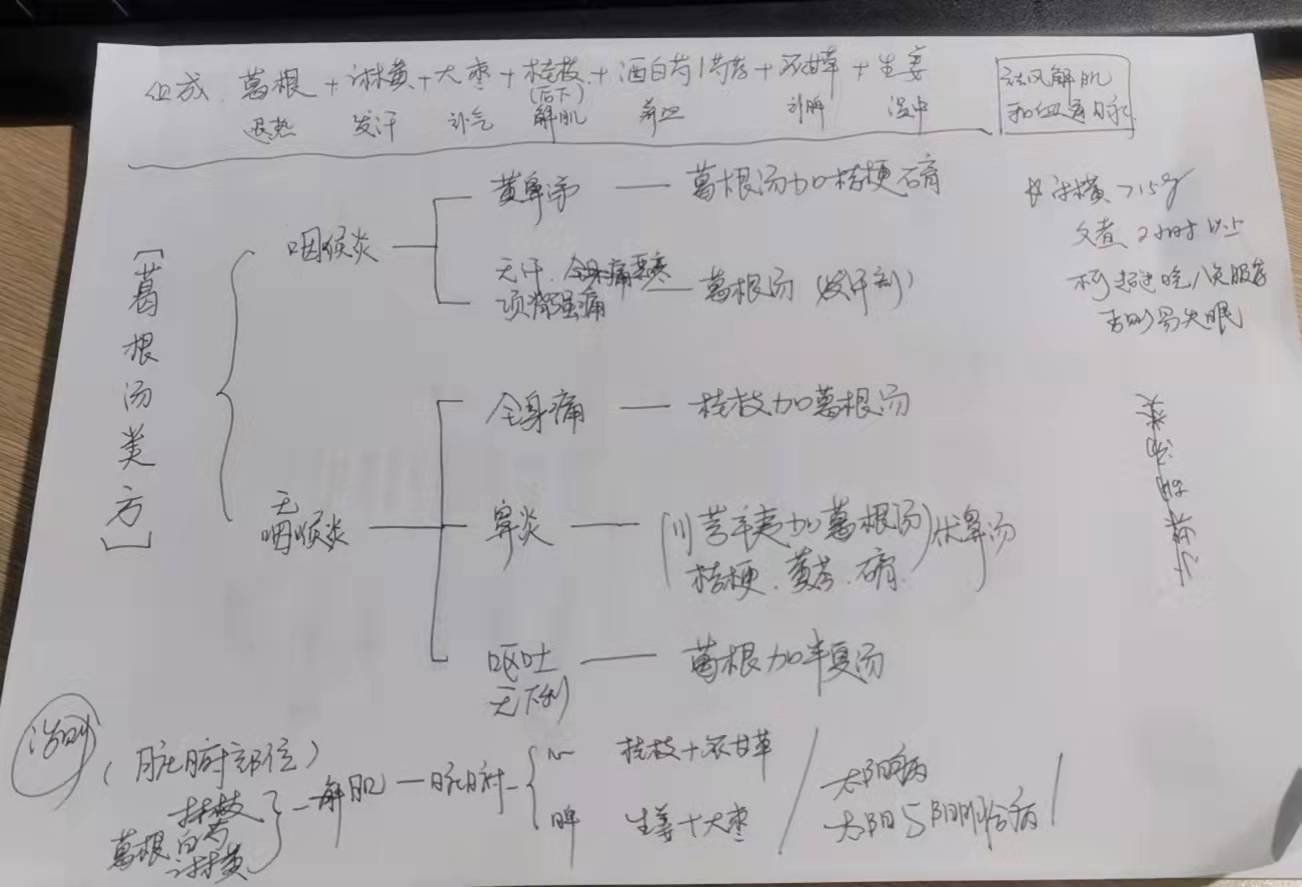 组成 葛根+麻黄+大枣+桂枝+酒白芍/芍药+炙甘草+生姜
(后下)
退热 发汗 补气 解肌 养血 补脾 温中
祛风解肌
[葛根汤类方]
咽喉炎
黄鼻涕 — 葛根汤加桔梗石膏
无汗.全身痛恶寒
项背强痛 — 葛根汤(发汗剂)
麻黄>15g
久煮2小时以上
否则易失眠
无
咽喉炎
全身痛 — 桂枝加葛根汤
鼻炎 — (川芎辛夷加葛根汤)
桔梗.黄芩.石膏
呕吐 — 葛根加半夏汤
无下利
治则
(脏腑部位)
桂枝
白芍
葛根
麻黄
解肌 — 脏腑
心 桂枝+炙甘草
脾 生姜+大枣
太阳病
太阳与阳明合病